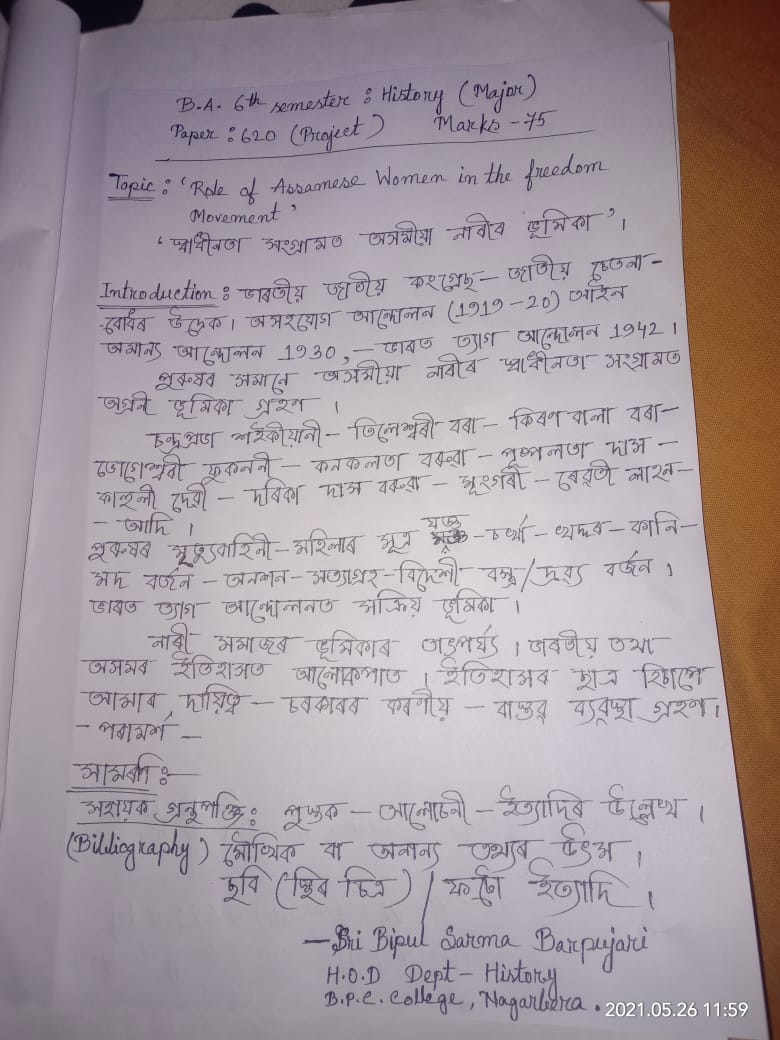 B.A. 6th semester : History (Major)
Paper : 620 (Project) Marks - 75
Topic : 'Role of Assamese Women in the freedom
Movement'
'স্বাধীনতা সংগ্ৰামত অসমীয়া নাৰীৰ ভূমিকা'।
Introduction : ভাৰতীয় জাতীয় কংগ্ৰেছ - জাতীয় চেতনা -
বোধৰ উদ্ৰেক। অসহযোগ আন্দোলন (1919-20) আইন
অমান্য আন্দোলন 1930, - ভাৰত ত্যাগ আন্দোলন 1942।
পুৰুষৰ সমানে অসমীয়া নাৰীৰ স্বাধীনতা সংগ্ৰামত
অগ্ৰনী ভূমিকা গ্ৰহণ ।
চন্দ্ৰপ্ৰভা শইকীয়ানী - তিলেশ্বৰী বৰা - কিৰণ বালা বৰা -
ভোগেশ্বৰী ফুকননী - কনকলতা বৰুৱা - পুষ্পলতা দাস -
দেৱী - দৰিকা দাস বৰুৱা - মুংগৰী - ৰেৱতী লাহন -
- আদি ।
পুৰুষৰ মৃত্যুবাহিনী - মহিলাৰ সূত্ৰ যজ্ঞ - চৰ্খা - খদ্দৰ - কানি -
মদ বৰ্জন - অনশন - সত্যাগ্ৰহ - বিদেশী বস্ত্ৰ / দ্ৰব্য বৰ্জন ।
ভাৰত ত্যাগ আন্দোলনত সক্ৰিয় ভূমিকা ।
নাৰী সমাজৰ ভূমিকাৰ তাৎপৰ্য্য । ভাৰতীয় তথা
অসমৰ ইতিহাসত আলোকপাত । ইতিহাসৰ ছাত্ৰ হিচাপে
আমাৰ দায়িত্ব - চৰকাৰৰ কৰণীয় - বাস্তৱ ব্যৱস্থা গ্ৰহণ।
- পৰামৰ্শ -
সামৰণি :-
সহায়ক গ্ৰন্থপঞ্জি : পুস্তক - আলোচনী - ইত্যাদিৰ উল্লেখ ।
(Bibliography) মৌখিক বা অনান্য তথ্যৰ উৎস ।
ছবি (স্থিৰ চিত্ৰ) / ফটো ইত্যাদি ।
- Sri Bipul Sarma Barpujari
H.O.D Dept - History
B.P.C. College, Nagarbera.
2021.05.26 11:59